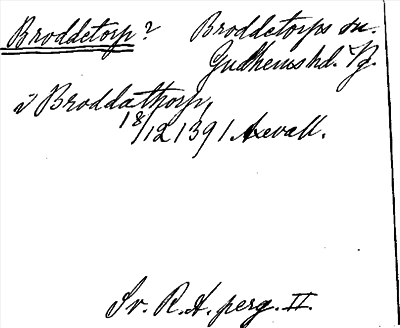 Broddetorp? Broddetorps sn.
Gudhems hd. Vg.
i Broddathorp,
18/12 1391 Axvall.
Sv. R. A. perg. II.